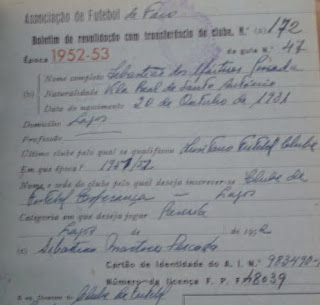 Associação de Futebol de Faro
Boletim de revalidação com transferência de clube, N.º (a) 172
Época 1952-53 da guia N.º 47
(b) Nome completo Sebastião dos Mártires
Naturalidade Vila Real de Santo António
Data do nascimento 20 de Outubro de 1931
Domicílio Lagos
Profissão
Último clube pelo qual se qualificou Lusitano Futebol Clube
Em que época? 1951/52
Nome e sede do clube pelo qual deseja inscrever-se Clube de
Futebol Esperança — Lagos
Categoria em que deseja jogar Reserva
Lagos de de 1952
(c) Sebastião Martires
Cartão de Identidade do A. I. N.º
Número da licença F. P. F. 48039
Clube de Futebol